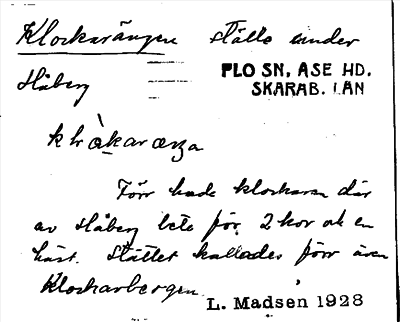 Klockarängen ställe under
Slåberg
FLO SN. ÅSE HD.
SKARAB. LÄN
klɔ̀kar æŋa
Förr hade klockaren där
av Slåberg bete för 2 kor ok en
häst. Stället kallades förr även
Klockarbergen.
L. Madsen 1928